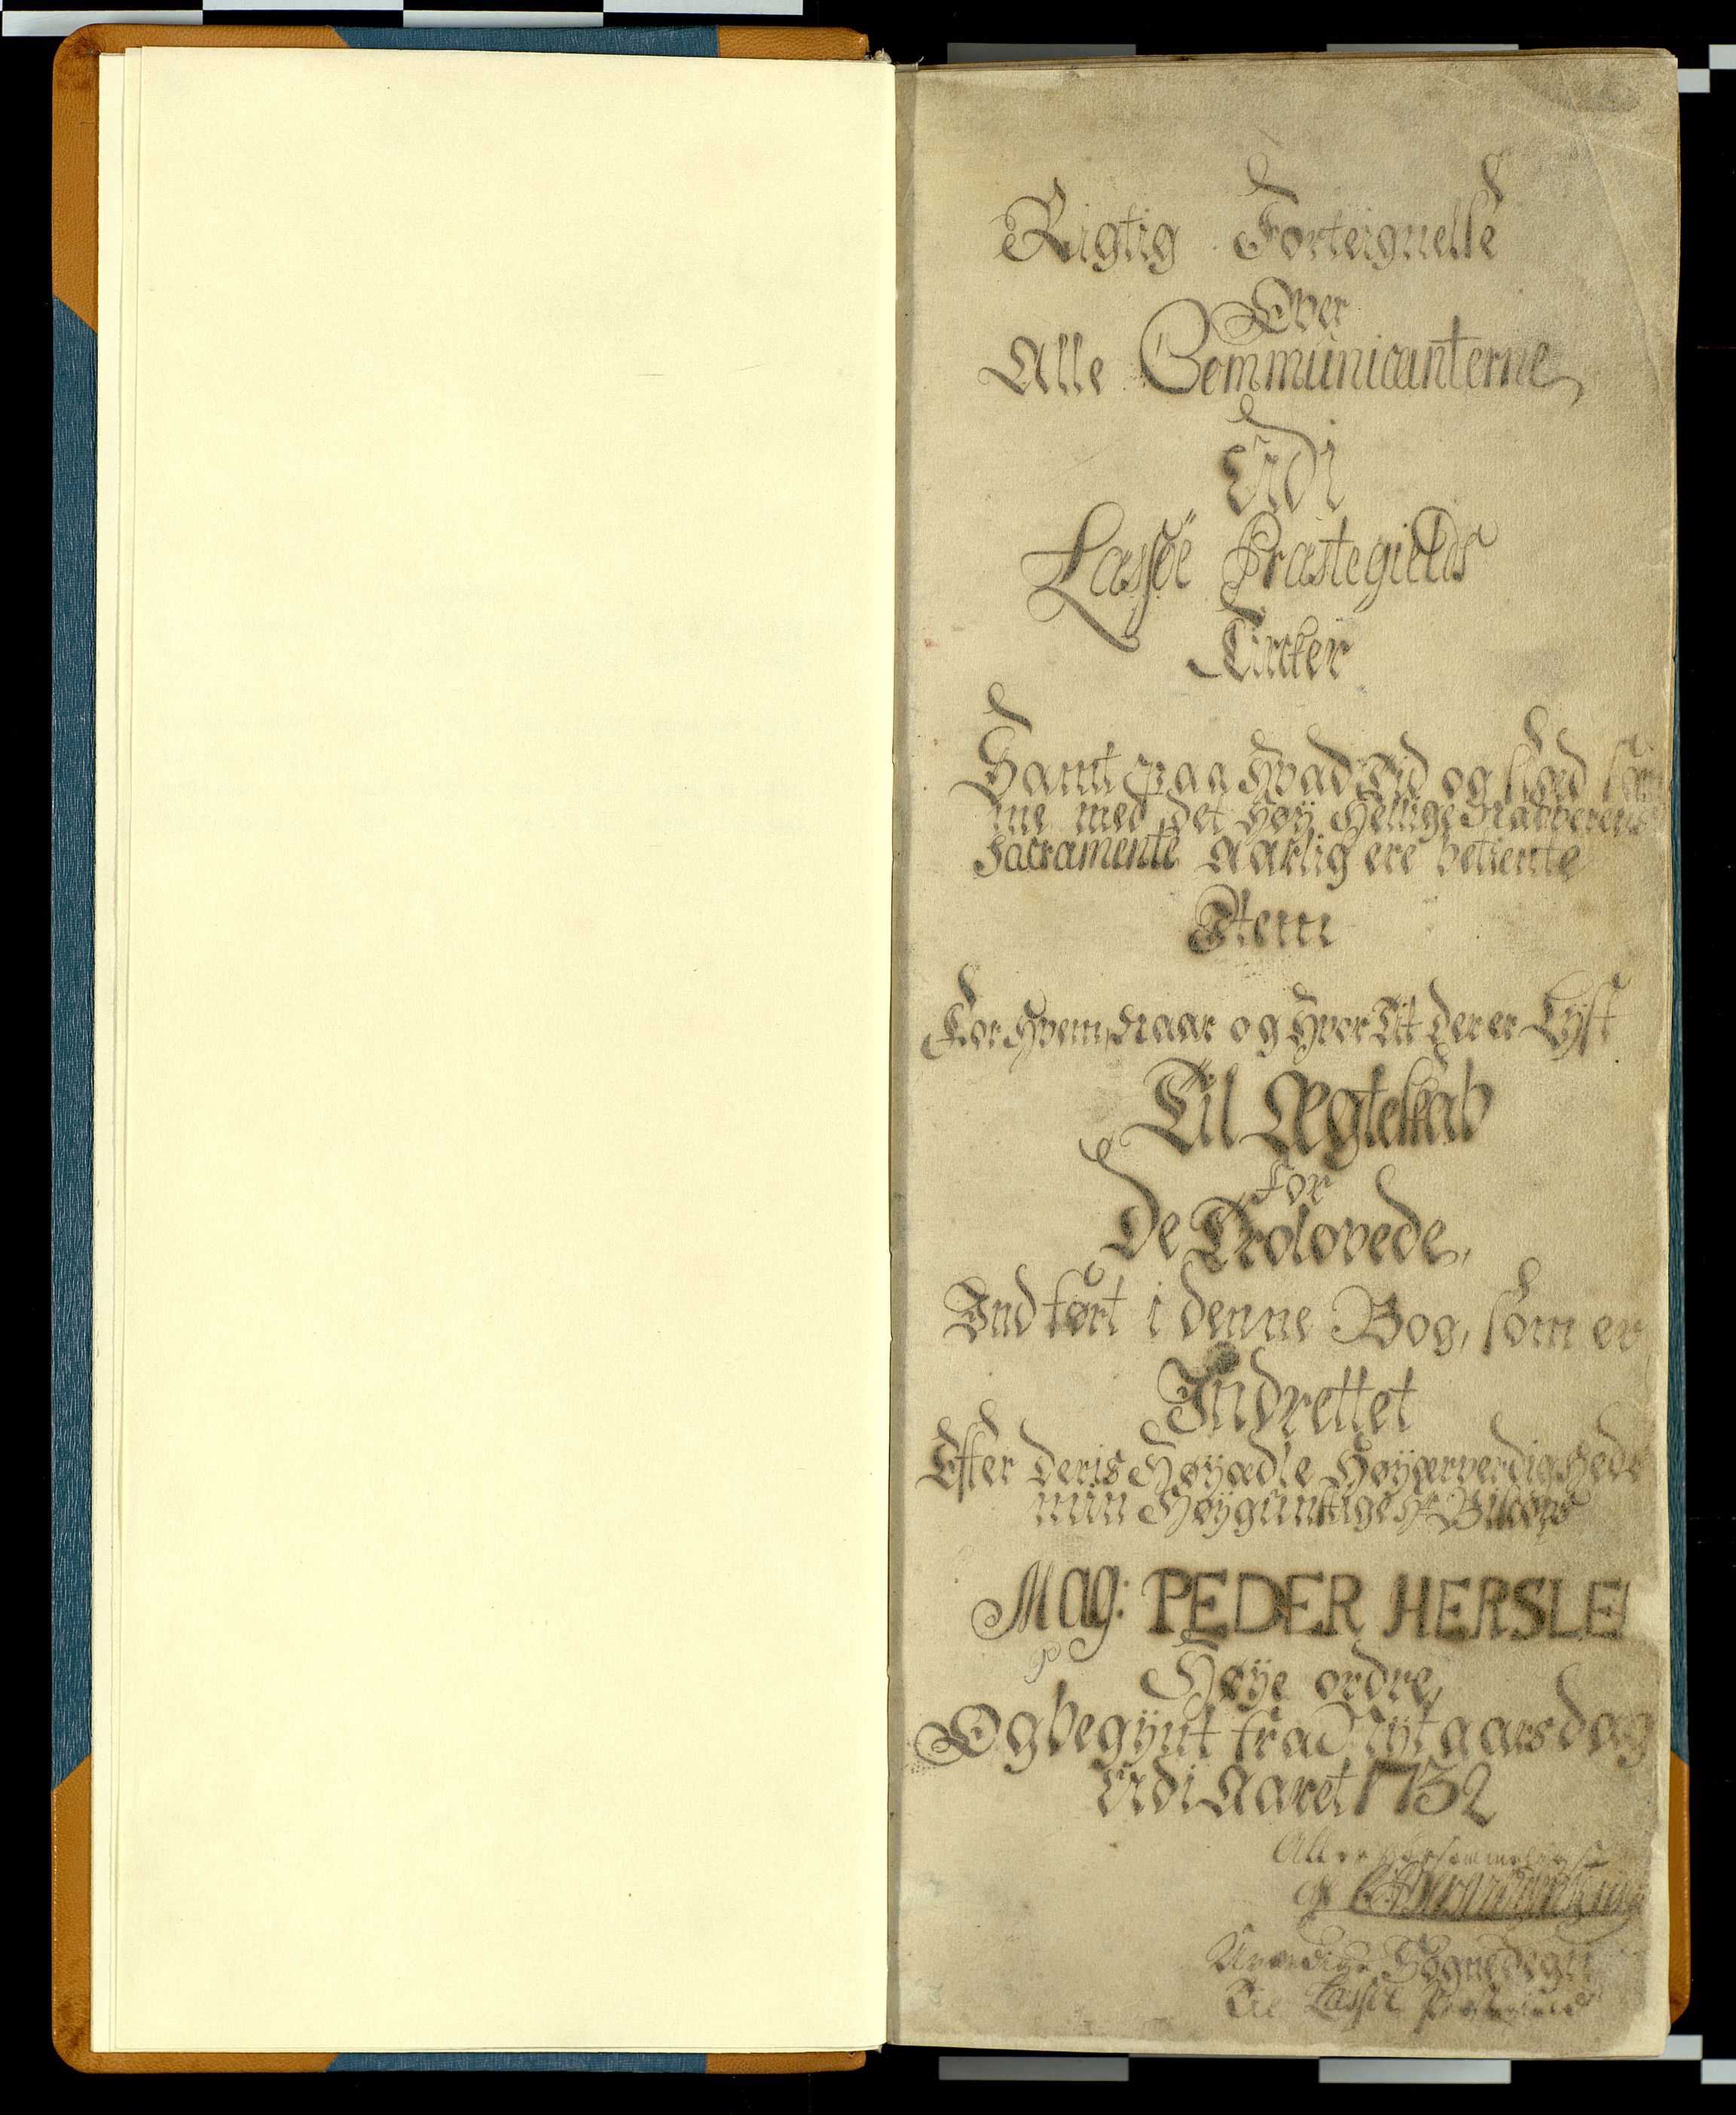 Rigtig Forteignelse
Over
Alle Communicanterne
Udi
Lassöe Præstegields
Kircker
Samt paa Hvad Tid og stæd sam
me med det Høy Hellige Nadverens
Sacramente Aarlig ere betiente
Item
For Hvem, Naar og Hvor Tit der er Lyst
Til Ægteskab
for
De Trolovede,
Indført i denne Bog, som er
Indrettet
Efter Deris Høyædle Høyærverdigheds
min Høygunstige Hr Biscops
Mag: PEDER HERSLE
Høye ordre,
Og begÿnt fra Nÿtaars dag
Udi Aaret 1732
Aller
af
Uværdige Sognedegn
Til Lassöe Præstegield